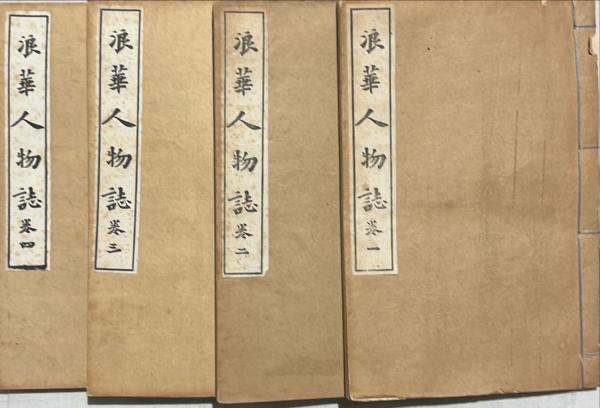 浪華人物誌 巻一
浪華人物誌 巻二
浪華人物誌 巻三
浪華人物誌 巻四